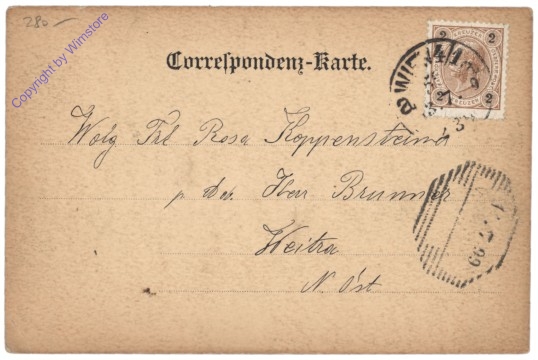 280 -
Copyright by Wimstore.
Correspondenz-Karte.
2 KREUZER 2
2 2
WIEN 4/1
Wolg Frl Rosa Koppensteiner
p. Adr. Herr Brunner
Weitra
N. Öst
7.99